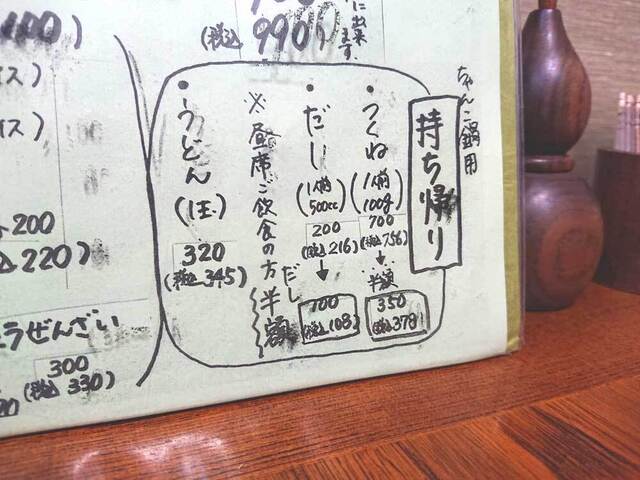 990
(税込
に出来ます。
100)
イス)
イス)
200
220)
うぜんざい
300
(税込 330)
ちゃんこ鍋用
持ち帰り
・つくね
(1人前 100g)
700
(税込 756)
半額
350
(税込 378)
・だし
(1人前 500cc)
200
(税込 216)
100
(税込 108)
※昼席ご飲食の方だし半額
・うどん
(1玉)
320
(税込 345)